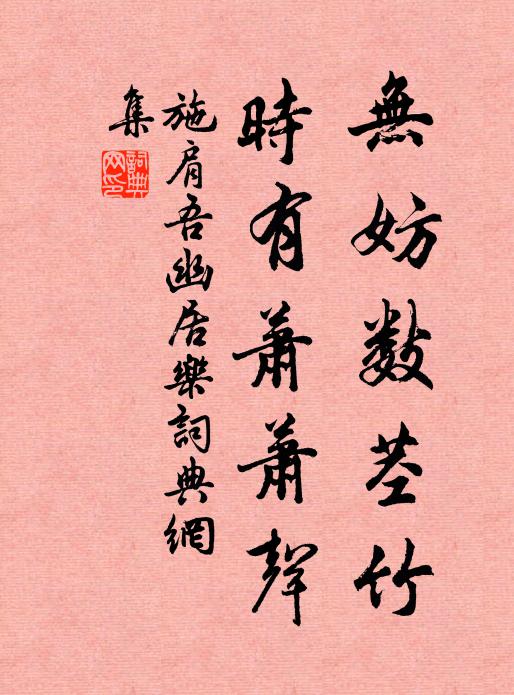 無妨數莖竹
時有蕭蕭聲
施肩吾幽居樂詞典網
集
詞典
网印